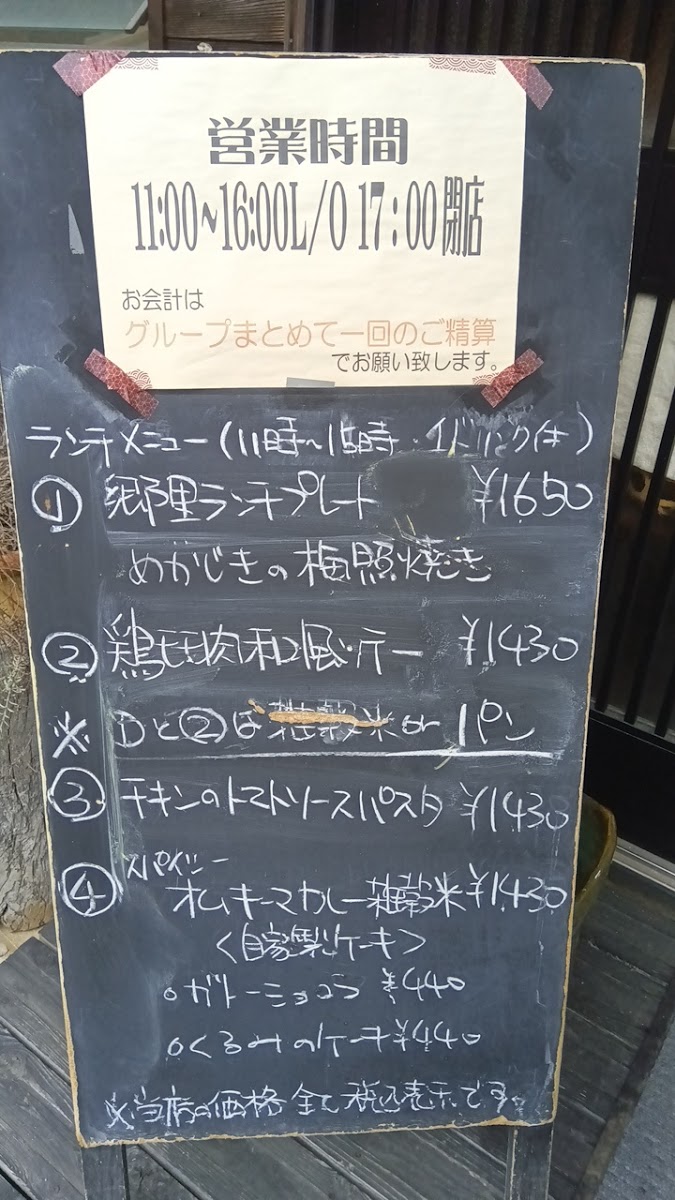 営業時間
11:00~16:00L/O 17:00閉店
お会計は
グループまとめて一回のご精算
でお願い致します。
ランチメニュー(11時~15時・1ドリンク付)
① 郷里ランチプレート ¥1650
めかじきの梅照焼き
② 鶏モモ肉和風ソテー ¥1430
※ ①と②は雑穀米orパン
③ チキンのトマトソースパスタ ¥1430
スパイシー
④ オムキーマカレー雑穀米 ¥1430
<自家製ケーキ>
○ガトーショコラ ¥440
○くるみのケーキ ¥440
※当店の価格全て税込表示です。